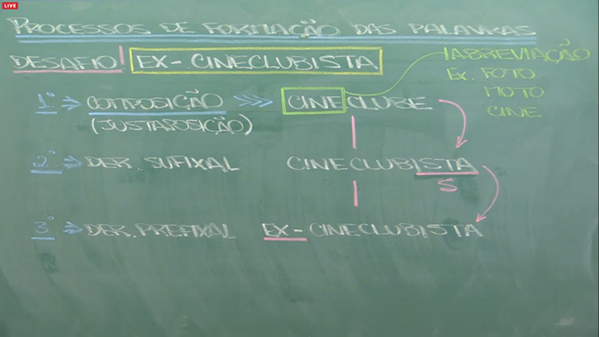 LIVE
PROCESSOS DE FORMAÇÃO DAS PALAVRAS
DESAFIO! EX-CINECLUBISTA
ABREVIAÇÃO
EX. FOTO
MOTO
CINE
1º COMPOSIÇÃO CINECLUBE
(JUSTAPOSIÇÃO)
2º DER. SUFIXAL CINECLUBISTA
S
3º DER. PREFIXAL EX-CINECLUBISTA